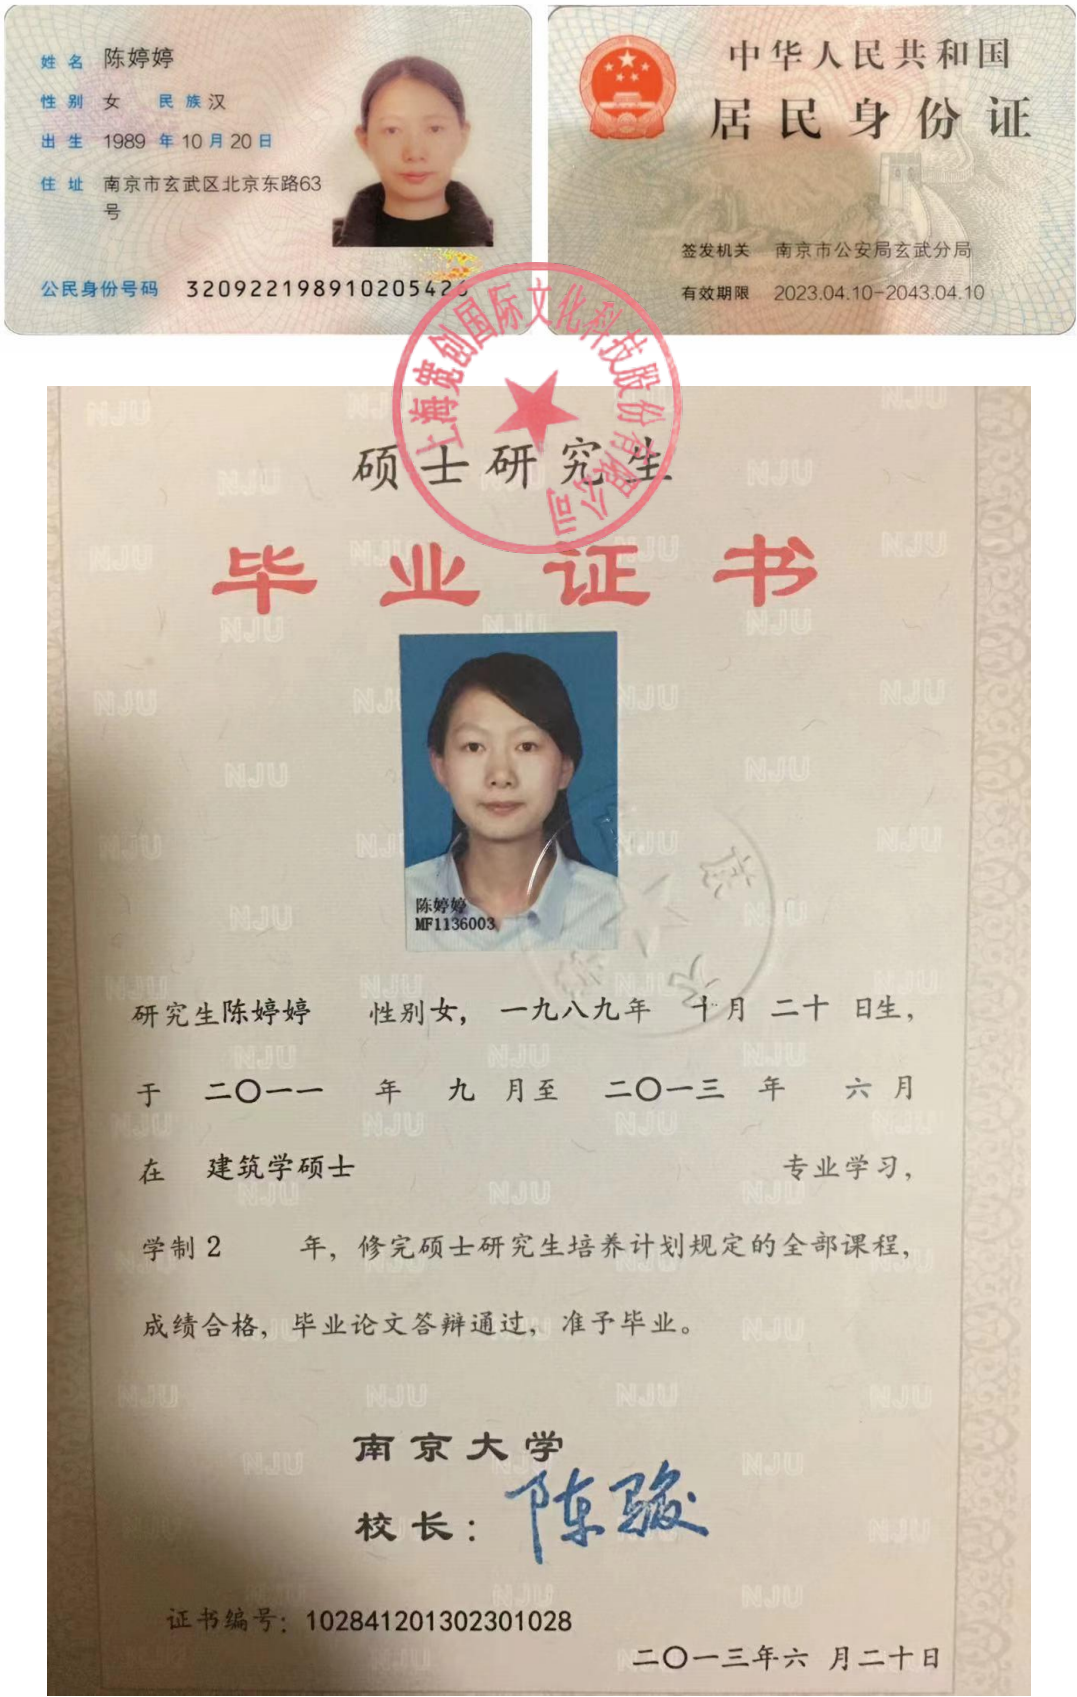 姓名 陈婷婷
性别 女 民族 汉
出生 1989 年 10 月 20 日
住址 南京市玄武区北京东路63
号
公民身份号码 32092219891020542
中华人民共和国
居民身份证
签发机关 南京市公安局玄武分局
有效期限 2023.04.10-2043.04.10
上海 创国际文化科技股份有限公司
硕士研究生
毕业证书
陈婷婷
MF1136003
研究生陈婷婷 性别女， 一九八九年 十月 二十 日生，
于 二〇一一 年 九 月至 二〇一三 年 六 月
在 建筑学硕士 专业学习，
学制 2 年，修完硕士研究生培养计划规定的全部课程，
成绩合格，毕业论文答辩通过，准予毕业。
南京大学
校长： 陈骏
证书编号：102841201302301028
二〇一三年六 月二十日
NJU